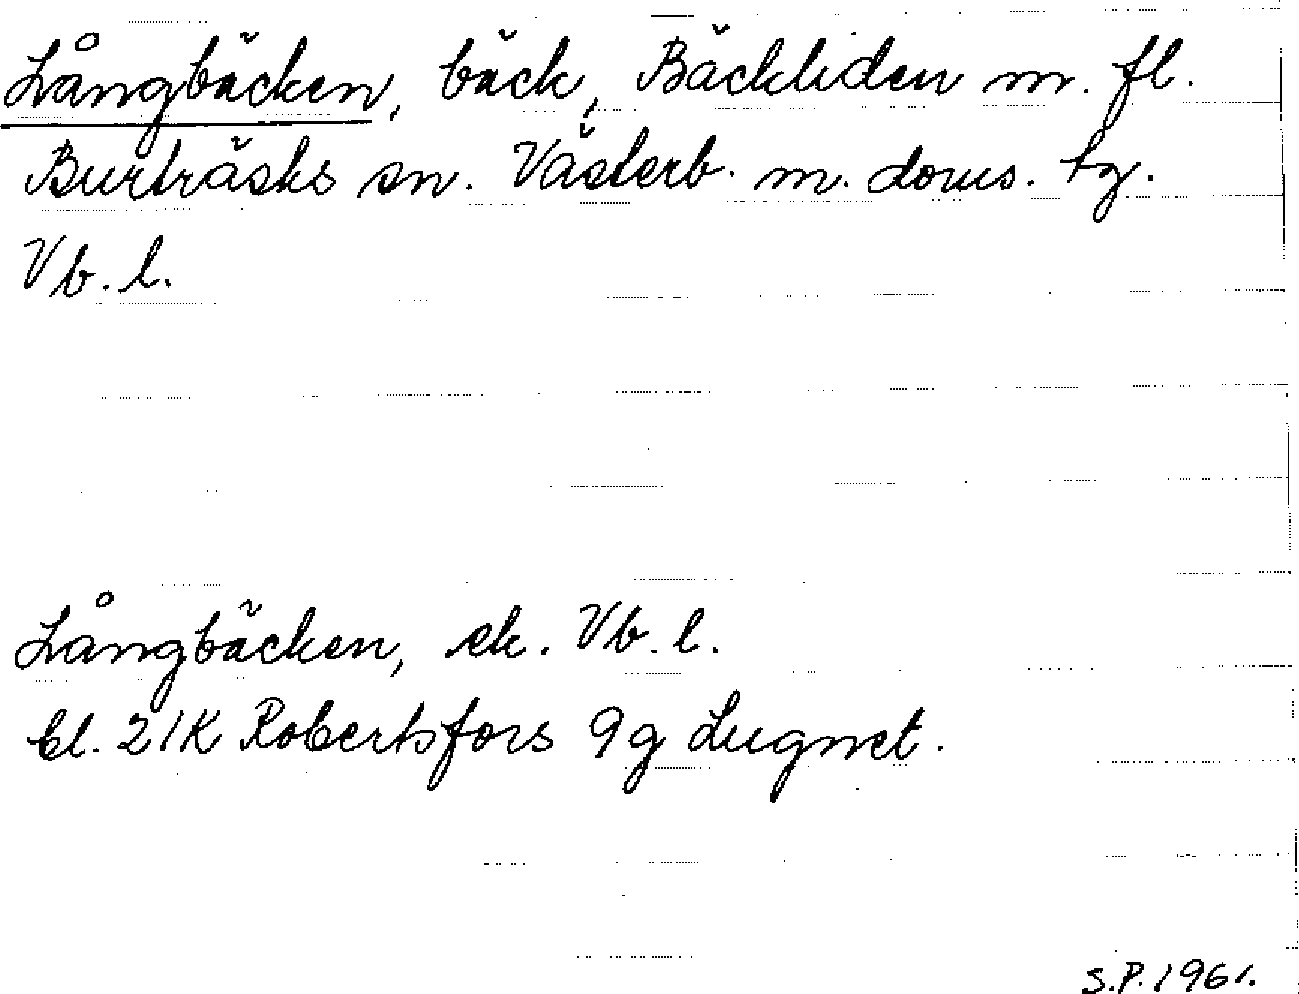 Långbäcken, bäck, Bäckliden m. fl.
Burträsks sn. Västerb. m. doms. tg.
Vb. l.
Långbäcken, ek. Vb. l.
bl. 21K Robertsfors 9g Lugnet.
S.P. 1961.